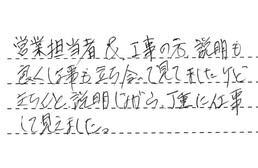 営業担当者 & 工事の方、説明も
良く仕事も立ち会って見てましたけど
きちんと説明しながら、丁重に仕事
して見えました。